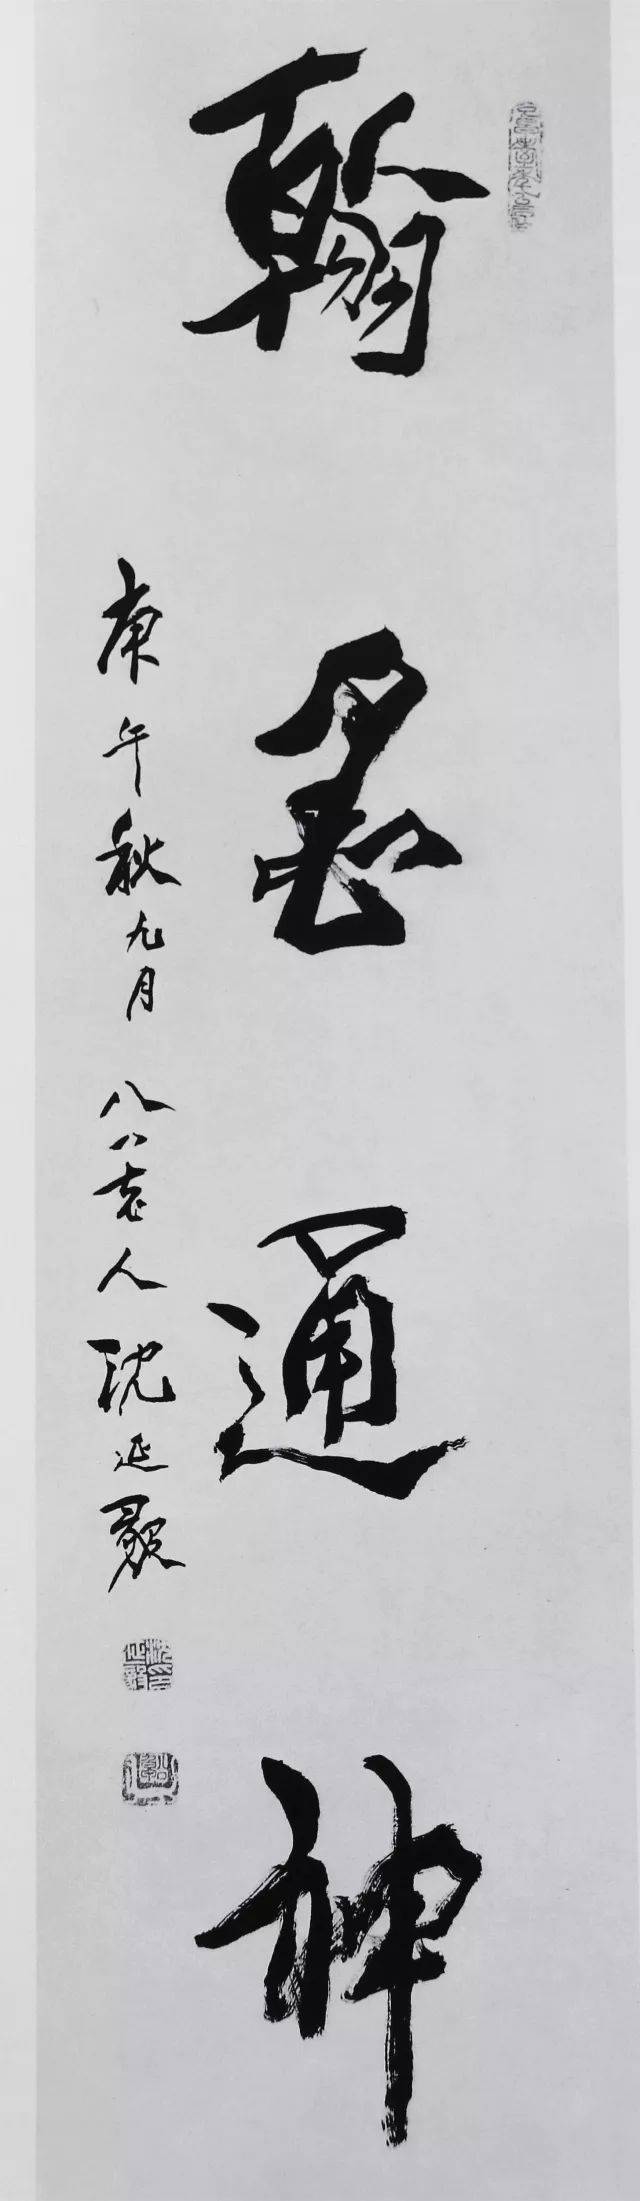 翰墨通神
庚午秋九月 八八老人沈延毅